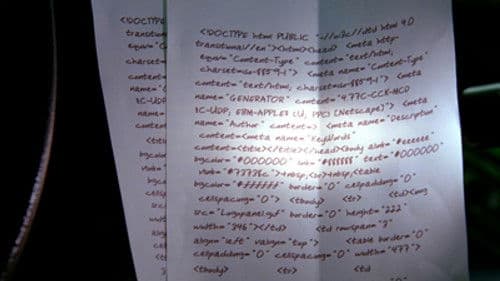 <!DOCTYPE
transitional
equiv="C
charset=
content=
name="G
{C-UDP
name="
content
content=
<title
bgcolor
vlink=
bgcolor
cells
src=
width
align
cellpad
<tbod
<!DOCTYPE html PUBLIC "-//w3c//dtd html 4.0
transitional//en"><html><head> <meta http-
equiv="Content-Type" content="text/html;
charset=iso-8859-1"> <meta name="Content-Type"
content="text/html; charset=iso-8859-1"> <meta
name="GENERATOR" content="4.77C-CCK-MCD
{C-UDP; EBM-APPLE} (U; PPC) [Netscape]"> <meta
name="Author" content=> <meta name="Description"
content=<meta name="KeyWords"
content=<title></title></head><body alink="#eeeeee"
bgcolor="#000000" link="#ffffff" text="#000000"
vlink="#77778c">&nbsp;<br>&nbsp;<table
bgcolor="#ffffff" border="0" cellpadding="0"
cellspacing="0"> <tbody> <tr> <td><img
src="Logopanel.gif" border="0" height="222"
width="346"></td> <td rowspan="3"
align="left" valign="top"> <table border="0"
cellpadding="0" cellspacing="0" width="477">
<tbody> <tr> <td